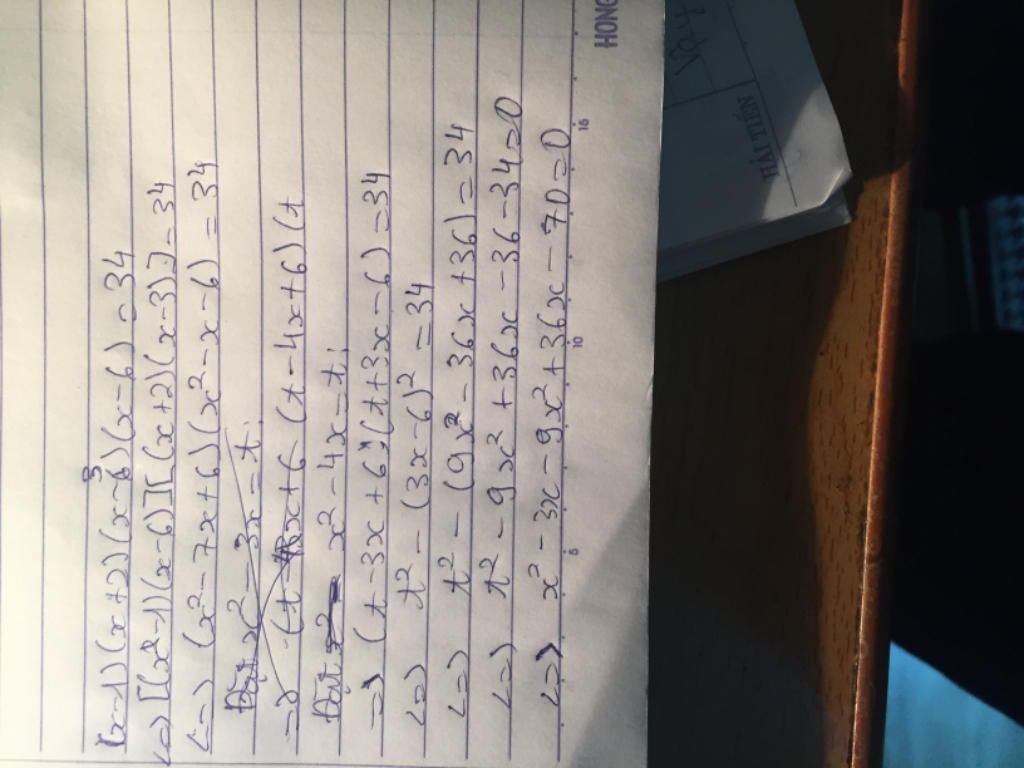 (x-1)(x+2)(x-3)(x-6)=34
<=> [(x-1)(x-6)][(x+2)(x-3)]=34
<=> (x²-7x+6)(x²-x-6)=34
Đặt x²-3x=t.
=> (t-4x+6-(t-4x+6)(t
Đặt x²-4x=t.
=> (t-3x+6)(t+3x-6)=34
<=> t²-(3x-6)²=34
<=> t²-(9x²-36x+36)=34
<=> t²-9x²+36x-36-34=0
<=> x²-3x-9x²+36x-70=0
5 10 15
HONG
HẢI TIẾN